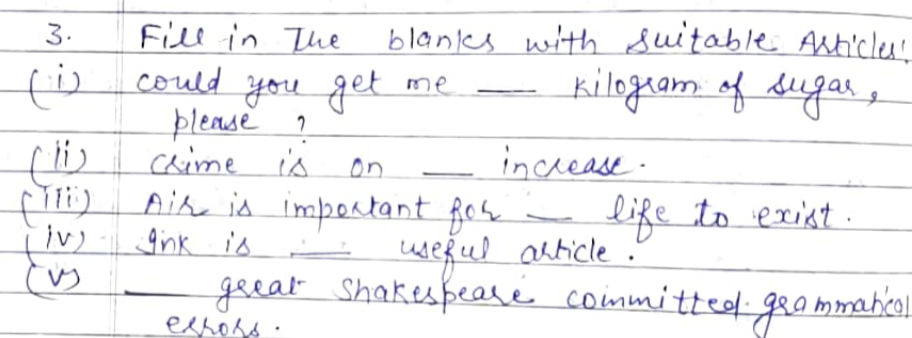 3. Fill in The blanks with suitable Articles:
(i) could you get me — kilogram of sugar,
please ?
(ii) crime is on — increase.
(iii) Air is important for — life to exist.
(iv) Ink is — useful article.
(v) — great Shakespeare committed grammatical
errors.